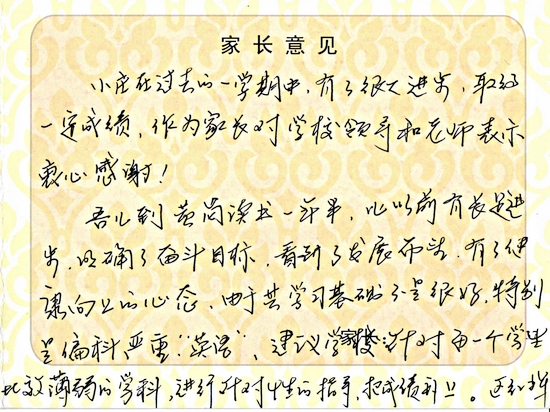 家长意见
小庄在过去的一学期中，有了很大进步，取得
一定成绩，作为家长对学校领导和老师表示
衷心感谢！
吾儿到黄尚读书一年半，比以前有长足进
步，明确了奋斗目标，看到了发展希望，有了健
康向上的心态，由于其学习基础不是很好，特别
是偏科严重“英语”，建议学校针对每一个学生
比较薄弱的学科，进行针对性的指导，把成绩